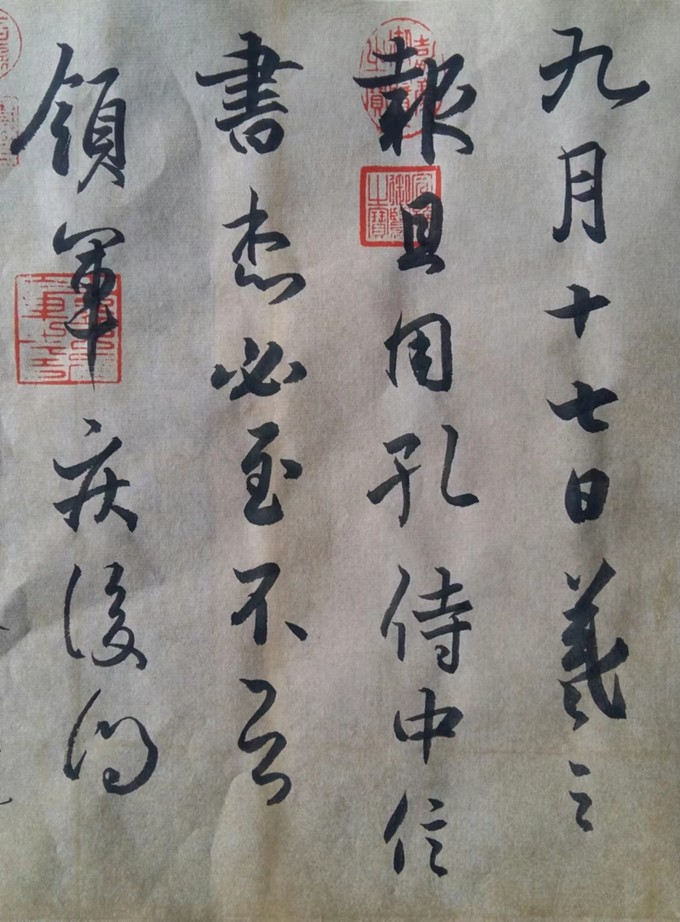 九月十七日羲之
報且因孔侍中信
書想必至不知
領軍疾後問